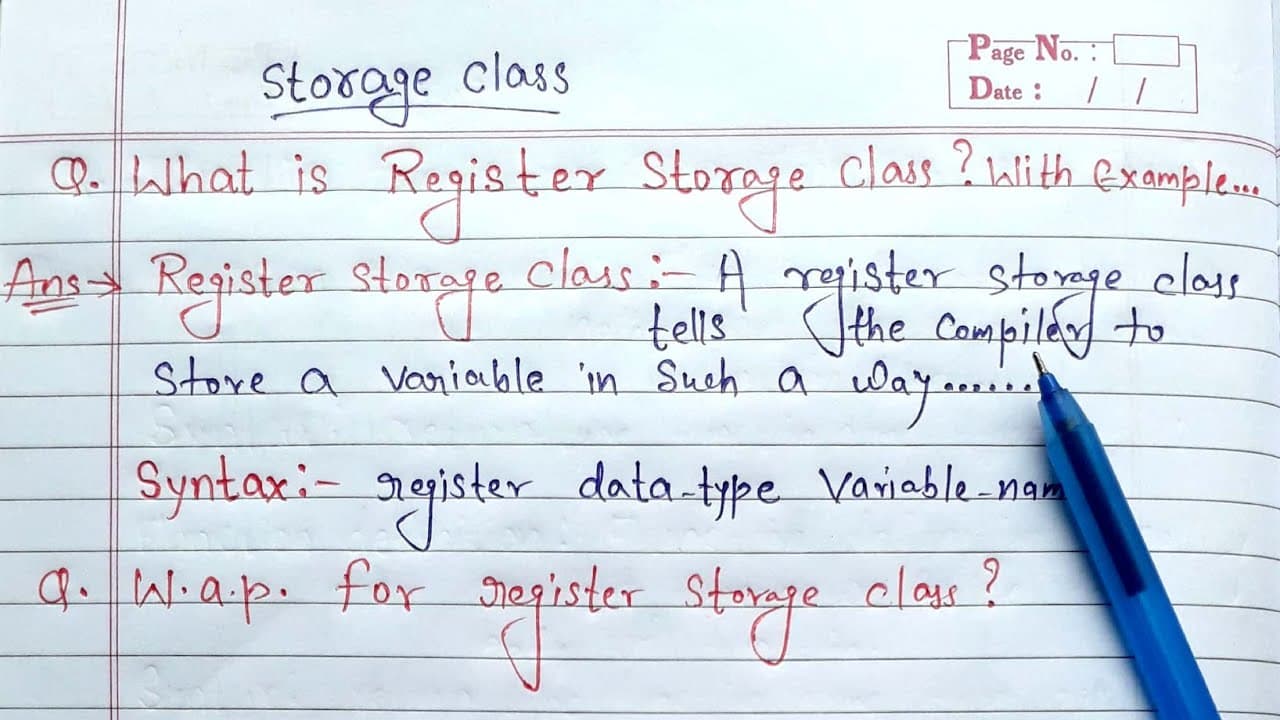 Storage Class
Page No. :
Date : / /
Q. What is Register Storage Class? With Example...
Ans→ Register Storage Class:- A register storage class
tells the Compiler to
Store a variable in Such a way.......
Syntax:- register data-type Variable-nam
Q. W.a.p. for register Storage class?